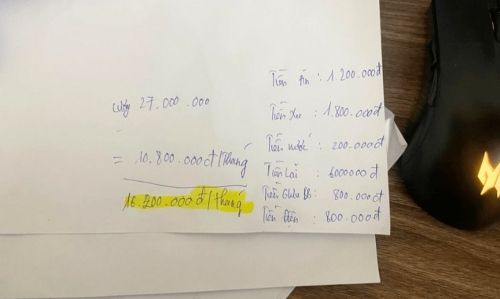 Lương 27.000.000
-
= 10.800.000đ/Tháng
16.200.000đ/tháng
Tiền Ăn : 1.200.000đ
Tiền Xe : 1.800.000đ
Tiền nước : 200.000đ
Tiền Lãi : 6000000đ
Tiền : 800.000đ
Tiền Điện : 800.000đ